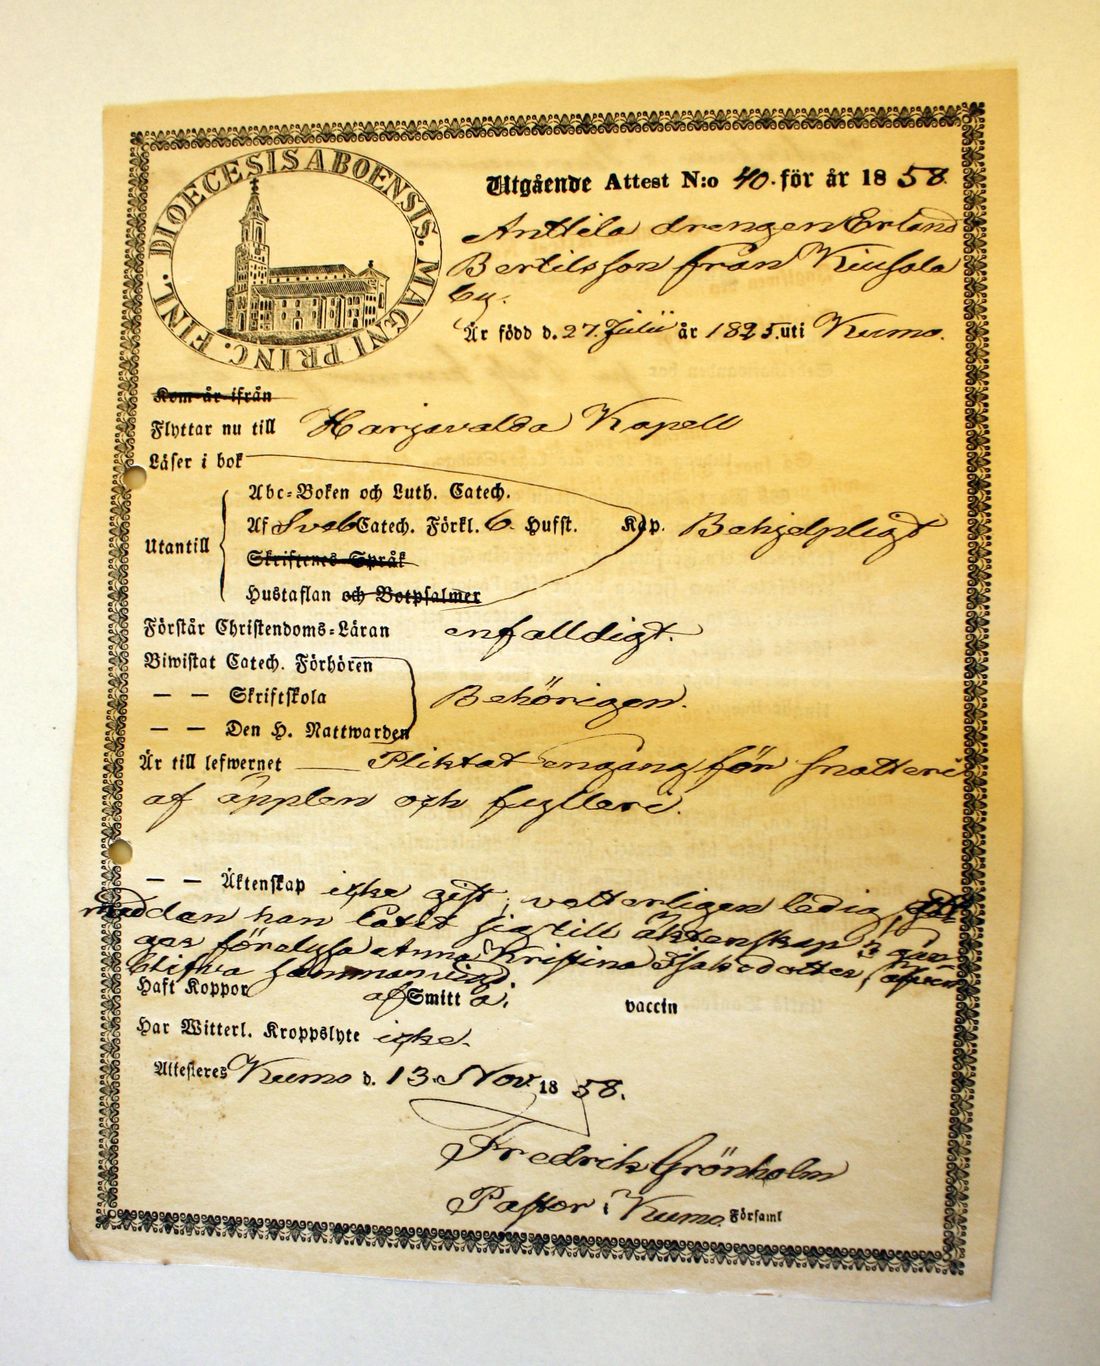 DIOECESIS ABOENSIS. MAGNI PRINC. FINL.
Utgående Attest N:o 40. för år 1858.
Anttila drengen Erland
Bertilsson från Kiusala
by.
Är född d. 27. Julii år 1825. uti Kumo.
Kom år ifrån
Flyttar nu till Harjavalda Kapell
Läser i bok
Abc-Boken och Luth. Catech.
Utantill
Af Sveb Catech. Förkl. 6. Hufst. Kap. Behjelpligt
Skriftenes Språk
Hustaflan och Botpsalmer
Förstår Christendoms-Läran enfalldigt.
Biwistat Catech. Förhören
— — Skriftskola Behörigen.
— — Den H. Nattwarden
Är till lefwernet Pliktat engång för snatteri
af äpplen och fylleri.
— — Äktenskap icke gift, vetterligen ledig,
meddan han låtit sig till äktenskap 2 gån
ger förelysa Anna Kristina Isaksdotter,
blifva
Haft Koppor af Smitt a; vaccin
Har Witterl. Kroppslyte icke.
Attesteres Kumo d. 13. Nov. 1858.
Fredrik Grönholm
Pastor i Kumo Församl